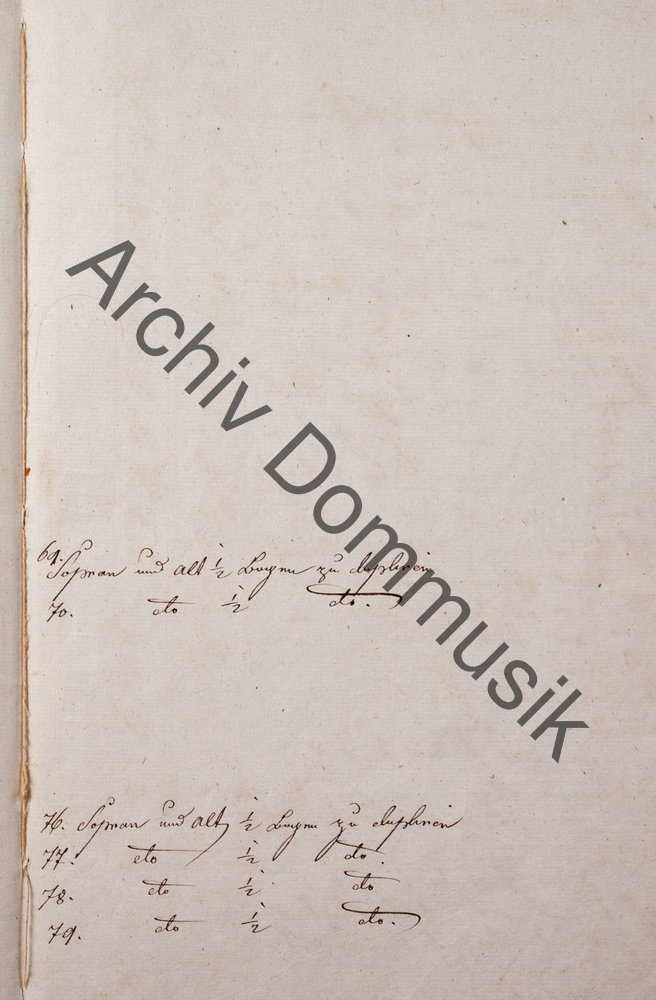 Archiv Dommusik
69. Sopran und alt ½ Bogen zu dupliren
70. dto ½ do.
76. Sopran und alt ½ Bogen zu dupliren
77. dto ½ do.
78. dto ½ dto
79. dto ½ dto.